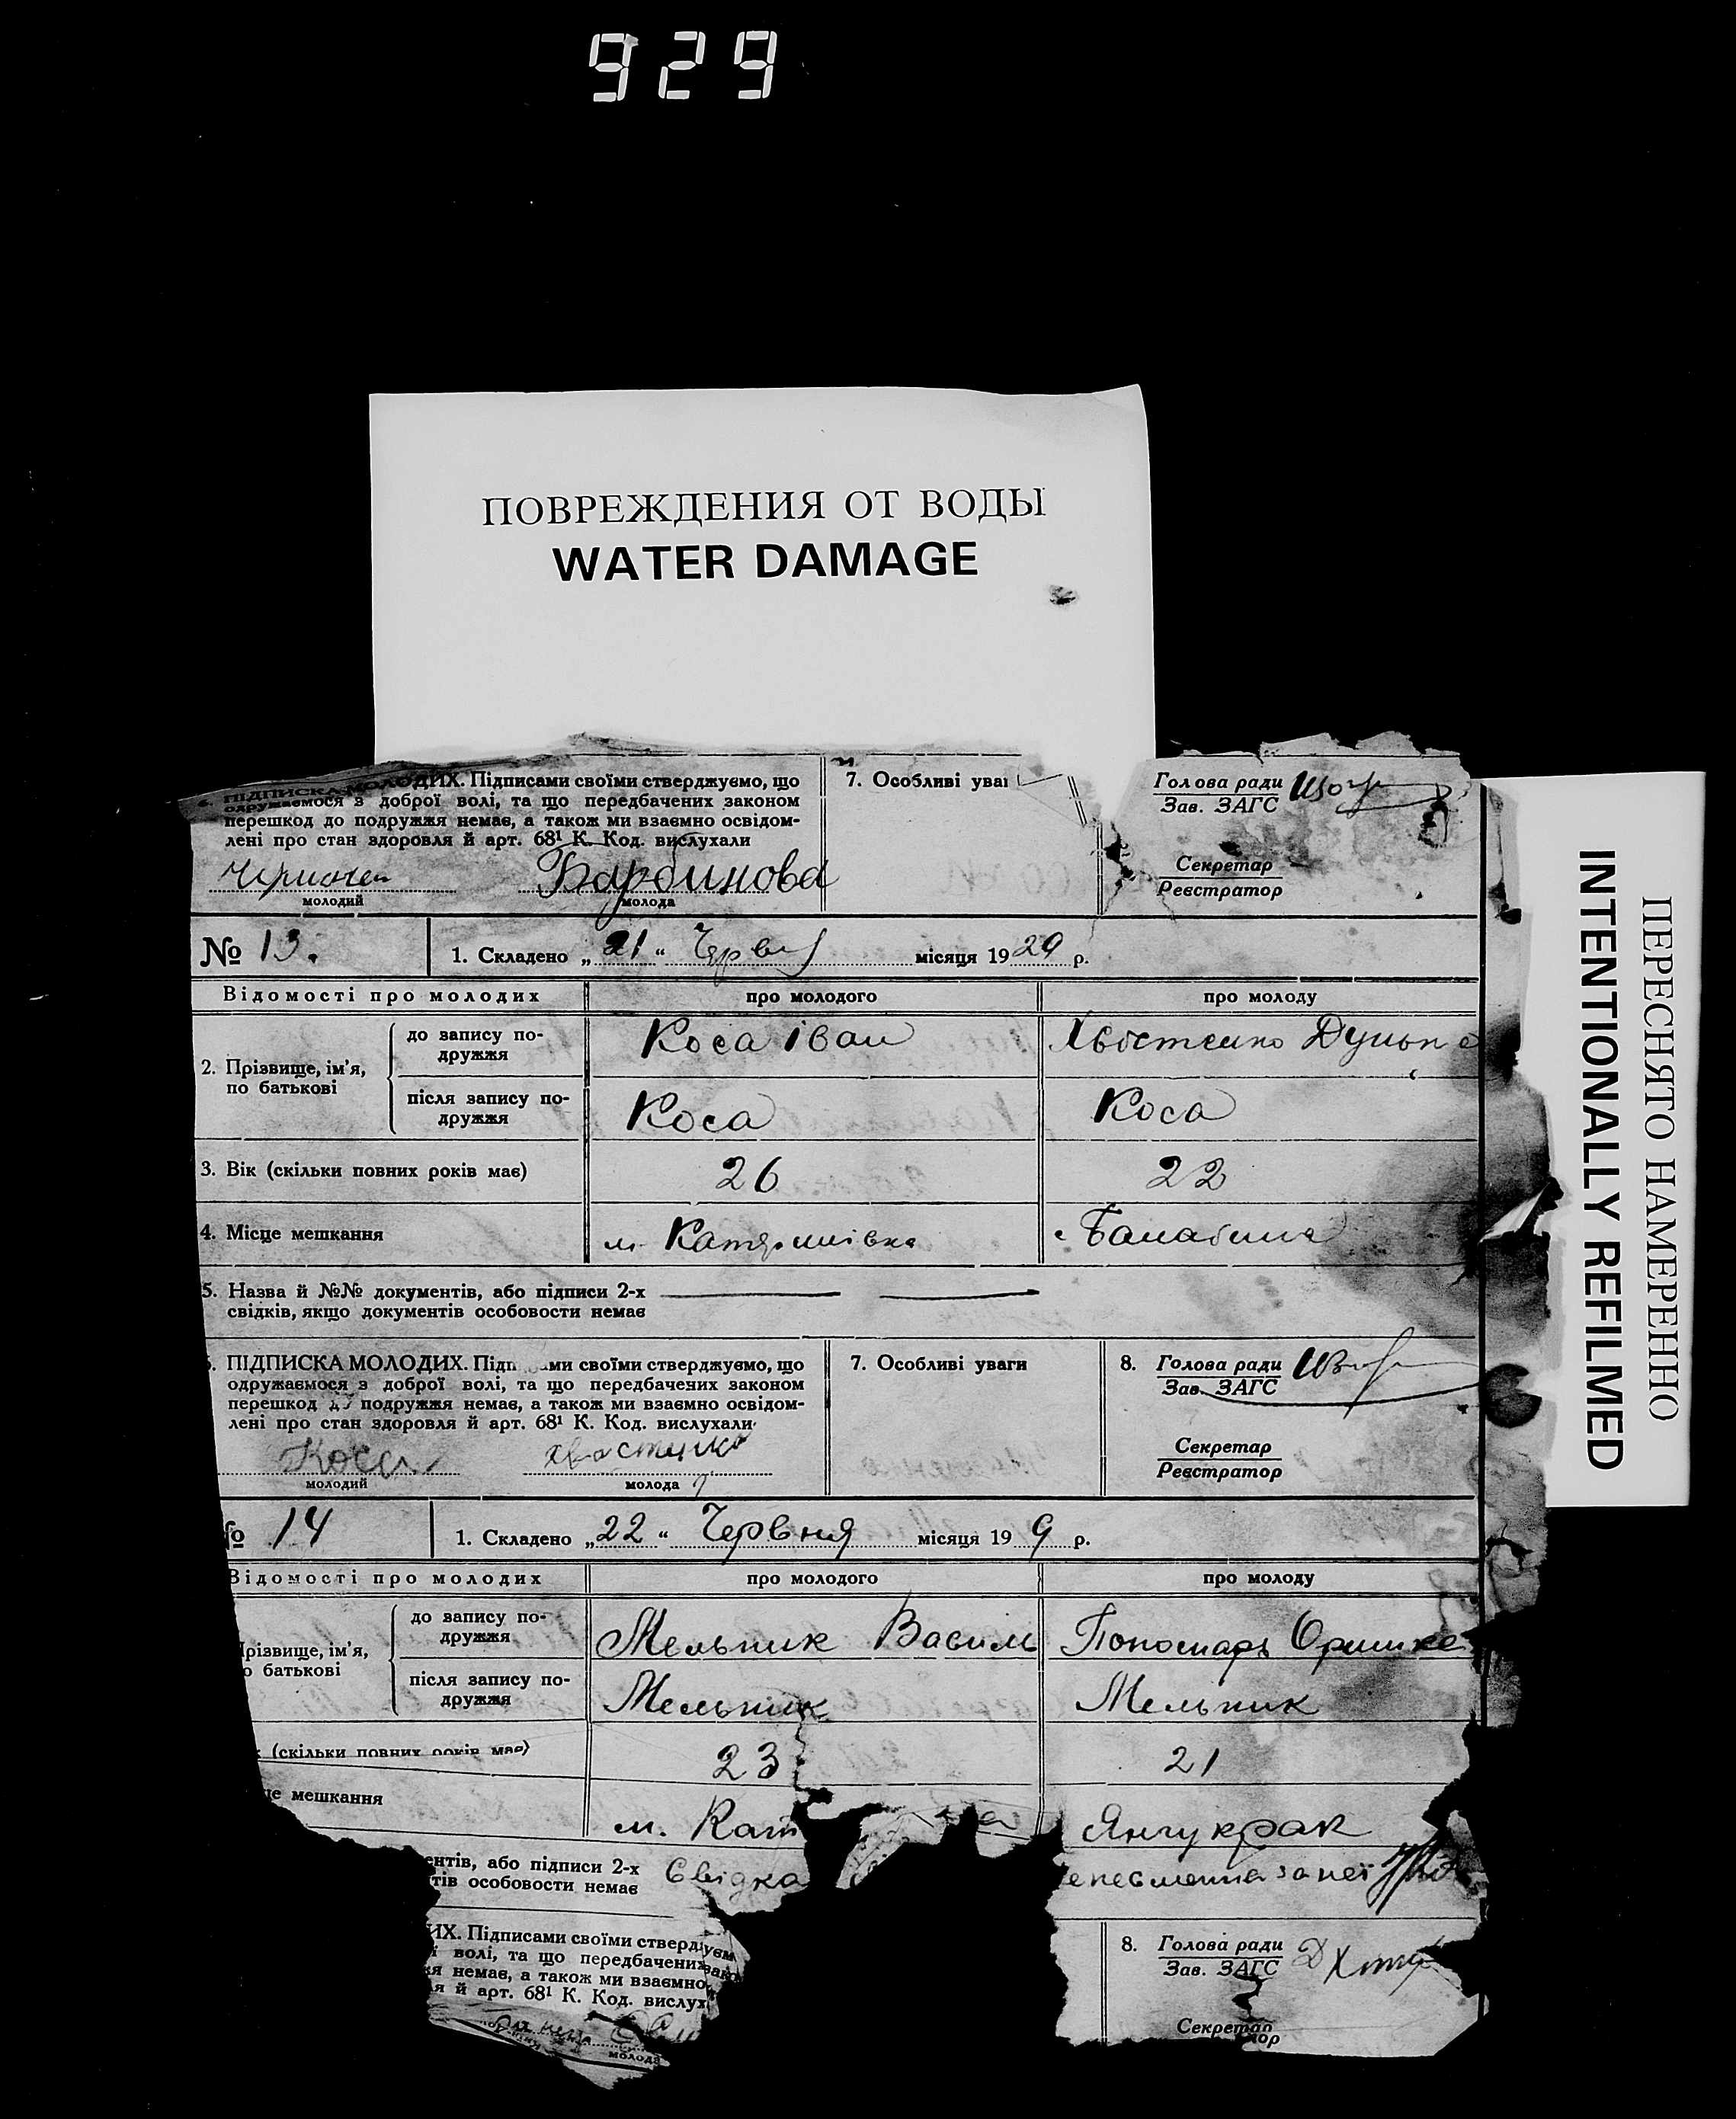 929
ПОВРЕЖДЕНИЯ ОТ ВОДЫ
WATER DAMAGE
ПЕРЕСНЯТО НАМЕРЕННО
INTENTIONALLY REFILMED
ПІДПИСКА МОЛОДИХ. Підписами своїми стверджуємо, що
одружаємося з доброї волі, та що передбачених законом
перешкод до подружжя немає, а також ми взаємно освідом-
лені про стан здоровля й арт. 68¹ К. Код. вислухали
молодий
молода
7. Особливі уваг
Голова ради
Зав. ЗАГС
Секретар
Реєстратор
№ 13.
1. Складено „ 21 “ місяця 19 29 р.
Відомості про молодих про молодого про молоду
2. Прізвище, ім'я,
по батькові
до запису по-
дружжя
Коса Іван
Хвостенко
після запису по-
дружжя
Коса
Коса
3. Вік (скільки повних років має) 26 22
4. Місце мешкання м. Катеринівка
5. Назва й №№ документів, або підписи 2-х
свідків, якщо документів особовости немає
ПІДПИСКА МОЛОДИХ. Підп ми своїми стверджуємо, що
одружаємося з доброї волі, та що передбачених законом
перешкод до подружжя немає, а також ми взаємно освідом-
лені про стан здоровля й арт. 68¹ К. Код. вислухали
Коса
молодий
молода
7. Особливі уваги
8. Голова ради
Зав. ЗАГС
Секретар
Реєстратор
№ 14
1. Складено „ 22 “ Червня місяця 19 9 р.
Відомості про молодих про молодого про молоду
різвище, ім'я,
о батькові
до запису по-
дружжя
Мельник Васил
Пономарь Оришка
після запису по-
дружжя
Мельник
Мельник
(скільки повних років має) 23 21
це мешкання м. Кат Янчукрак
ентів, або підписи 2-х
тів особовости немає
Свідка
за неї
ИХ. Підписами своїми стверджуєм
і волі, та що передбачених зако
я немає, а також ми взаємно
я й арт. 68¹ К. Код. вислух
молода
8. Голова ради
Зав. ЗАГС
Секретар